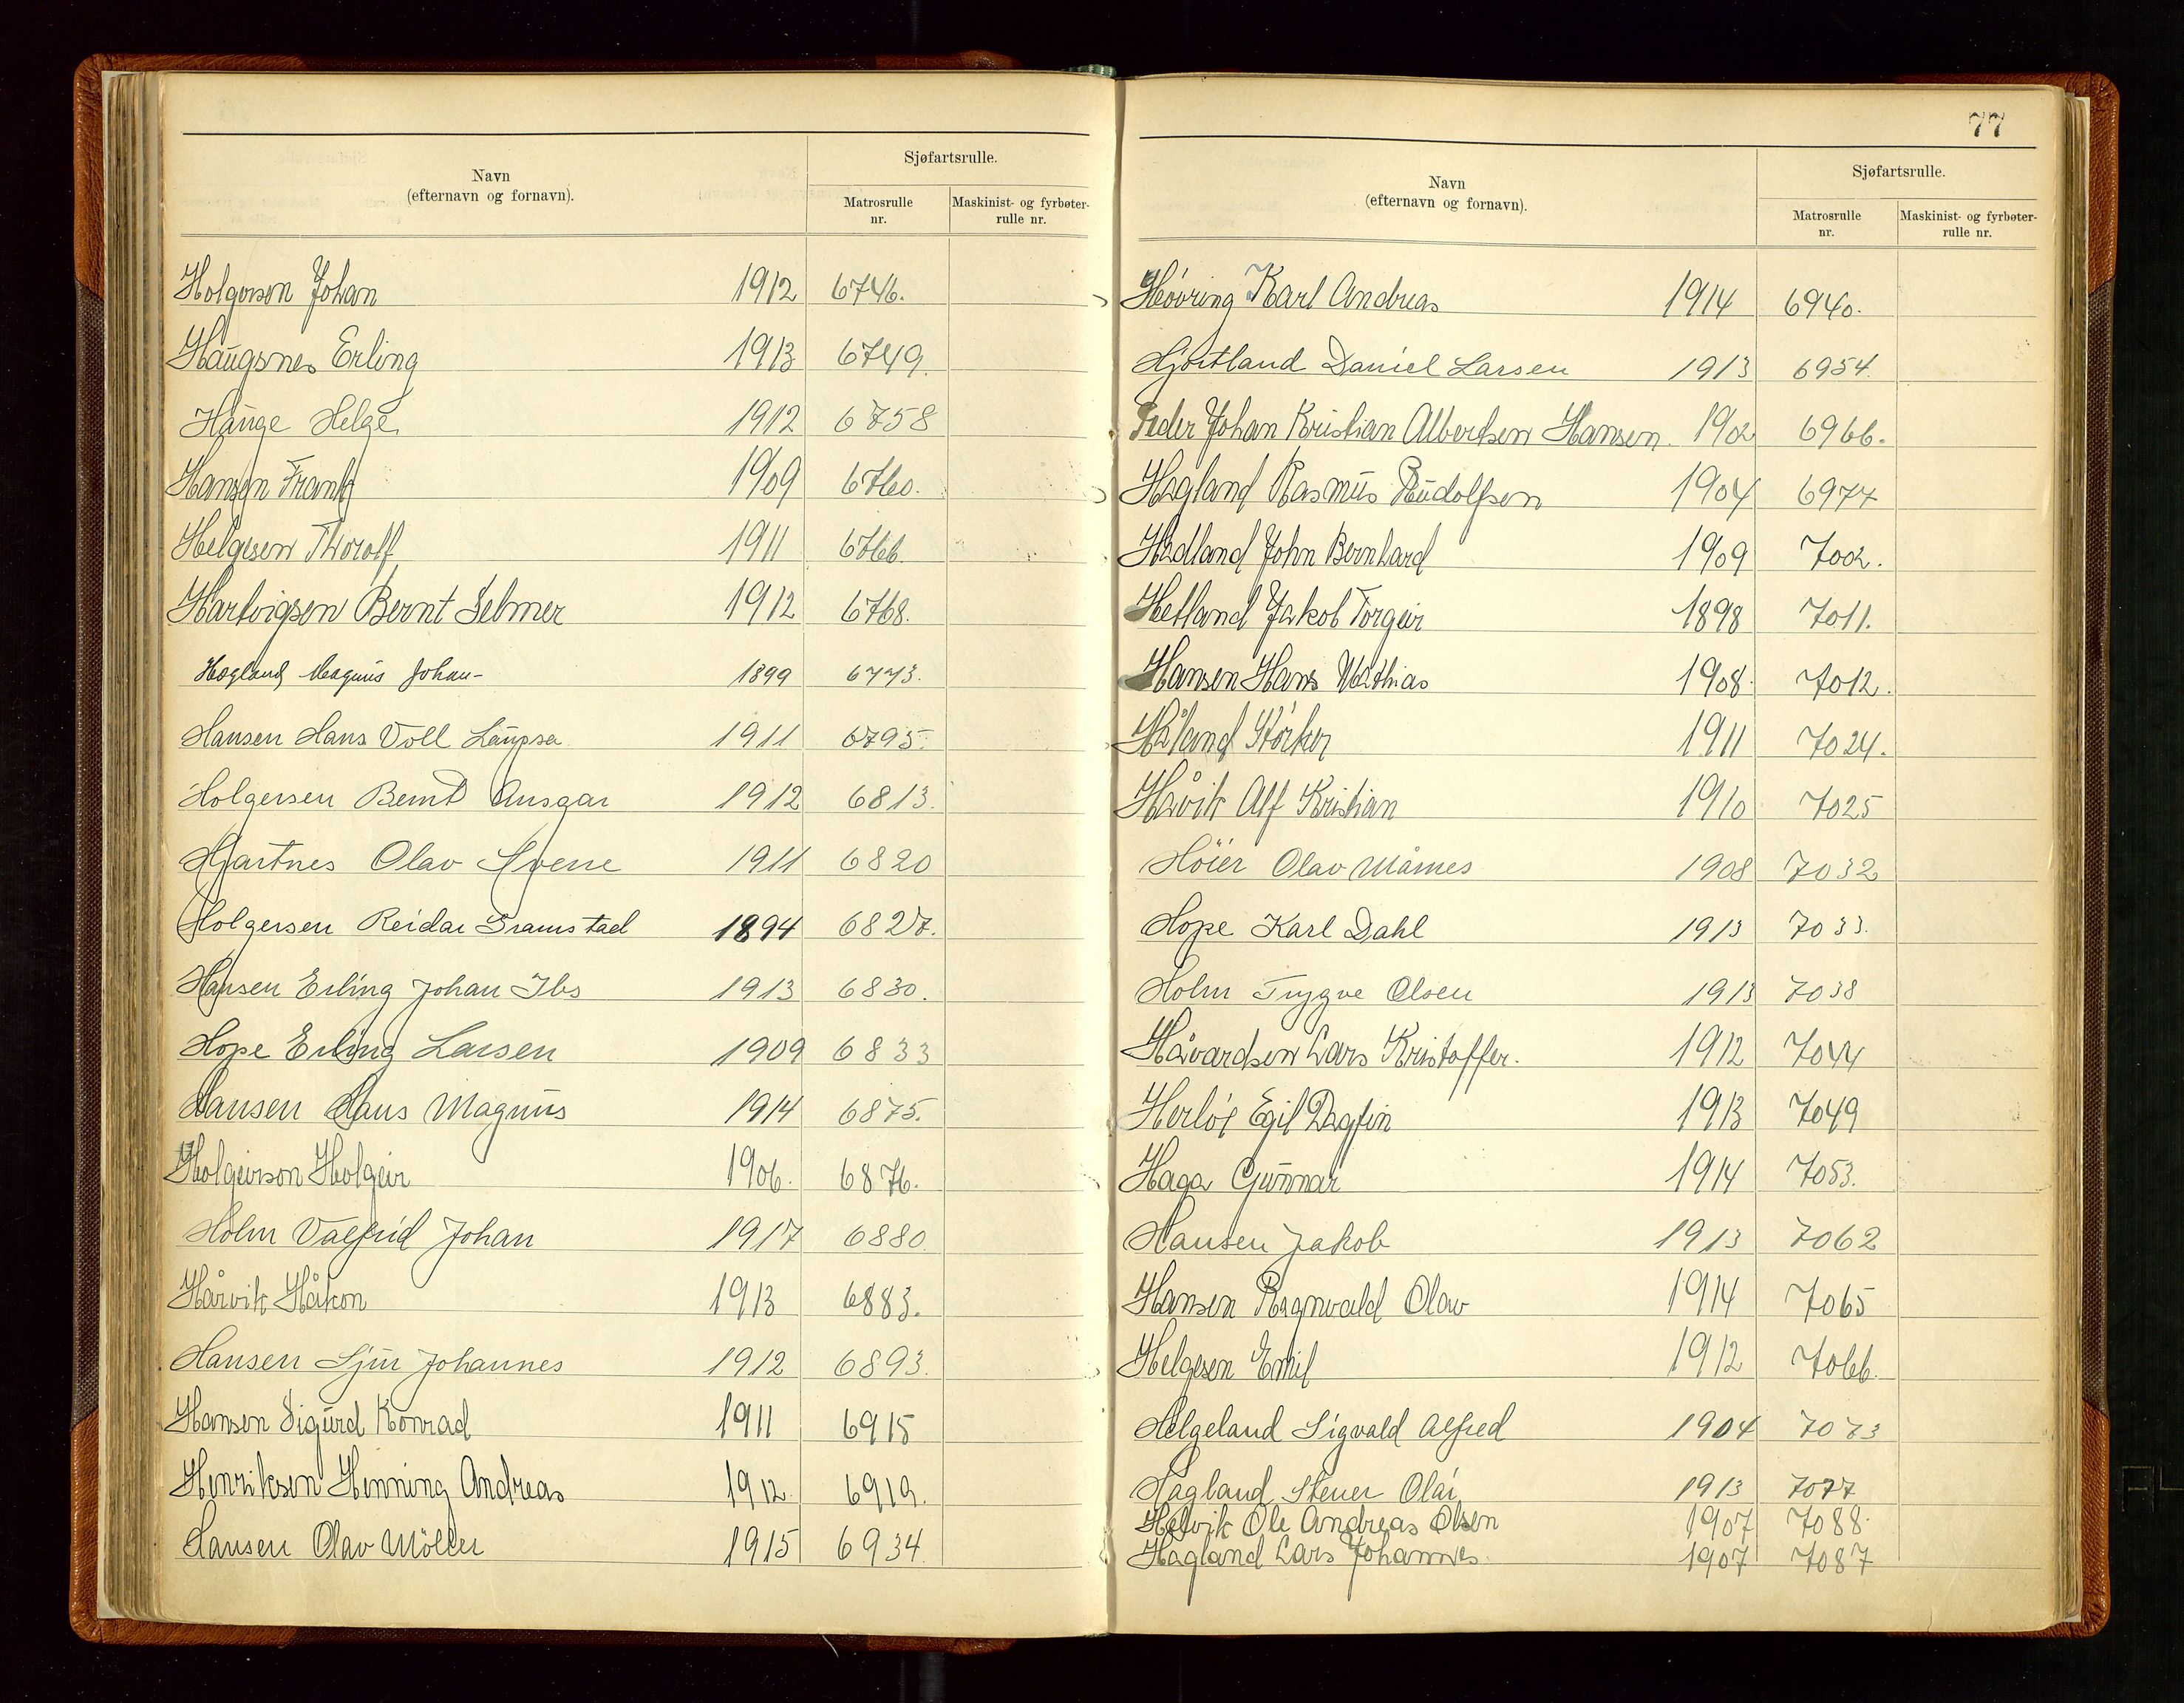 Navn
(efternavn og fornavn).
Sjøfartsrulle.
Matrosrulle
nr.
Maskinist- og fyrbøter-
rulle nr.
Holgersen Johan 1912 6746.
Haugsnes Erling 1913 6749.
Hauge Helge 1912 6758
Hansen Frank 1909 6760.
Helgesen Thorolf 1911 6766.
Hartvigsen Bernt Selmer 1912 6768.
Hagland Magnus Johan 1899 6773.
Hansen Hans Voll 1911 6795.
Holgersen Bernt Ansgar 1912 6813.
Hjartnes Olav Sverre 1911 6820
Holgersen Reidar Gramstad 1894 6827.
Hansen Erling Johan Ibs 1913 6830.
Hope Erling Larsen 1909 6833
Hansen Hans Magnus 1914 6875.
Holgeirson Holgeir 1906. 6876.
Holm Valfrid Johan 1917 6880
Håvik Håkon 1913 6883.
Hansen Sjur Johannes 1912 6893.
Hansen Sigurd Konrad 1911 6915
Henriksen Henning Andreas 1912. 6919.
Hansen Olav Möller 1915 6934
77
Navn
(efternavn og fornavn).
Sjøfartsrulle.
Matrosrulle
nr.
Maskinist- og fyrbøter-
rulle nr.
Høvring Karl Andreas 1914 6940.
Hjortland Daniel Larsen 1913 6954.
Peder Johan Kristian Albertsen Hansen. 1902 6966.
Hagland Rasmus Rudolfsen 1904 6977
Hadland John Bernhard 1909 7002.
Hetland Jakob Torgeir 1898 7011.
Hansen Hans Mathias 1908. 7012.
Håland Störker 1911 7024.
Håvik Alf Kristian 1910 7025
Höier Olav Månes 1908 7032
Hope Karl Dahl 1913 7033.
Holm Trygve Olsen 1913 7038
Håvardsen Lars Kristoffer. 1912 7044
Herløe Egil Dagfin 1913 7049
Haga Gunnar 1914 7053.
Hansen Jakob 1913 7062
Hansen Ragnvald Olav 1914 7065
Helgesen Emil 1912 7066.
Helgeland Sigvald Alfred 1904 7073
Hagland Stener Olai 1913 7077
Høivik Ole Andreas Olsen 1907 7088.
Hagland Lars Johannes. 1907 7087